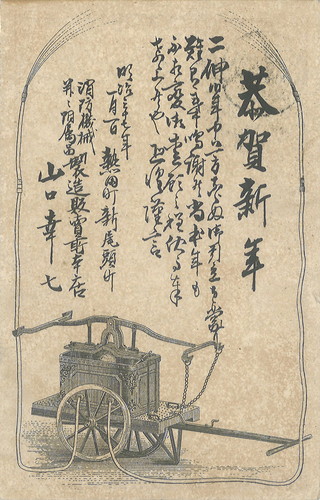 恭賀新年
二伸旧年中ハ一方ならぬ御引立を蒙
難有奉鳴謝候尚本年も
不相変御愛顧之程伏而奉
希上候也 恐惶謹言
明治三十七年
一月一日 熱田町新尾頭町
消防機械
并ニ附属品
製造販賣業本店
山口幸七